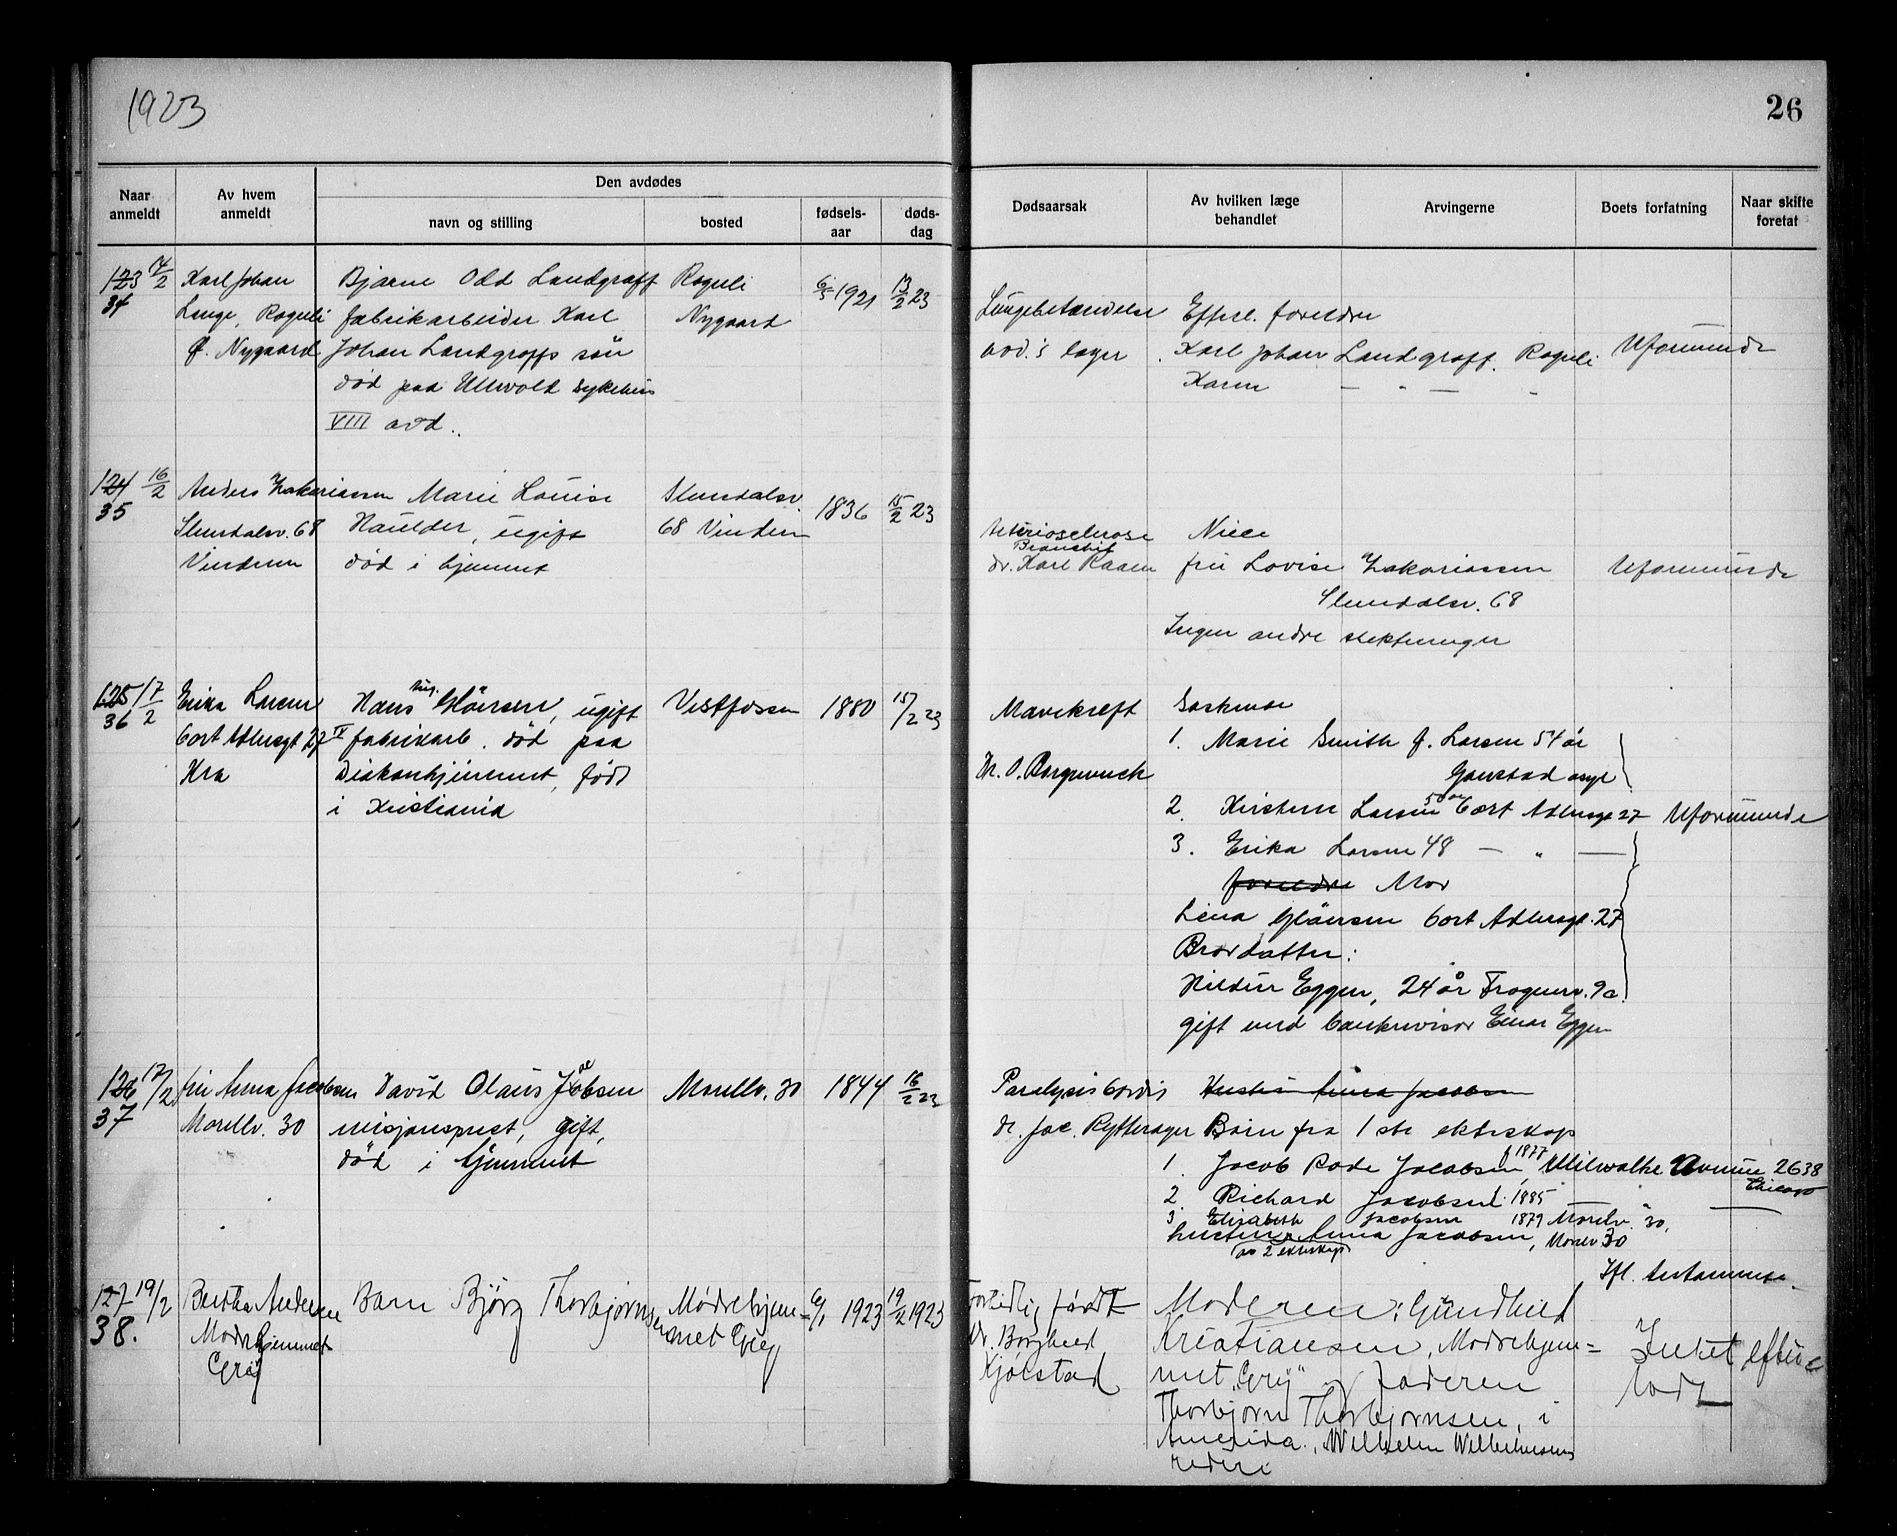 1923
26
Naar anmeldt
Av hvem anmeldt
Den avdødes
navn og stilling
bosted
fødselsaar
dødsdag
Dødsaarsak
Av hvilken læge behandlet
Arvingerne
Boets forfatning
Naar skifte foretat
123
34
Karl Johan
Nygaard
Bjarne Odd Landgraff
fabrikarbeider Karl
Johan Landgraffs søn
død paa Ullevold sykehus
VIII avd.
Nygaard
1921
13/2 23
Lungebetændelse
avd.s læger
Efterl. foreldre
Karl Johan Landgraff
Karen — " —
Uformuende
124 16/2
35
Anders Zakariassen
68
Vinderen
Marie Louise
ugift
død i hjemmet
68 Vinderen
1836
15/2 23
Arteriosclerose
dr. Karl Raaen
Niece
fru Lovise Zakariassen
68
Ingen andre slektninger
Uformuende
125 17/2
36
Erika Larsen
Cort Adlersgt 27
Kra
Hans
ugift
fabrikarb. død paa
Diakonhjemmet, født
i Kristiania
Vestfossen
1880
15/2 23
Mavekræft
Søskende
1. Marie Smith f. Larsen 54 år
Gaustad asyl
2. Kirstine Larsen 50 år Cort Adlersgt 27
Uformuende
3. Erika Larsen 48 — " —
foreldre Mor
Cort Adlersgt. 27
Brordatter:
Eggen, 24 år Frognerv. 9a.
gift med bankrevisor Einar Eggen
126 17/2
37
fru Anna Jacobsen
Morellv. 30
David Olaus Jacobsen
misjonsprest, gift,
død i hjemmet
Morellv. 30
1844
16/2 23
Paralysis Cordis
dr. Jac. Rytterager
Hustru Anna Jacobsen
Barn fra 1ste ekteskap
1. Jacob Rode Jacobsen f 1877, Milwalke Avenue 2638
Chicago
2. Richard Jacobsen 1885 — " —
3. Elisabeth Jacobsen 1879 Morellv. 30,
hustru Anna Jacobsen, Morellv 30
av 2 ekteskap
Ifl. testamente.
127 19/2
38.
Bertha Andersen
Mødrehjemmet
Grei
Barn Bjørg Thorbjørnsen
Mødrehjem=
met Grei
6/1 1923
19/2 1923
Fortidlig født
Dr. Borghild
Kjølstad
Moderen: Gundhild
Kristiansen, Mødrehjem=
met "Grei" Faderen
Thorbjørn Thorbjørnsen, i
Amerika, Wilhelm Wilhelmsens
rederi
Intet efter=
lodt